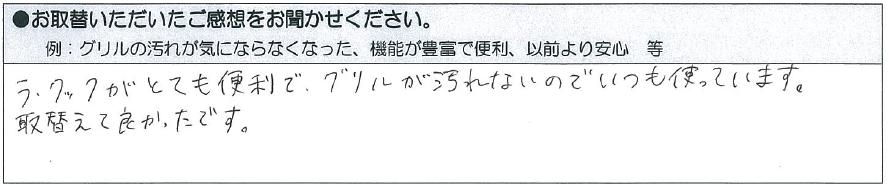 ●お取替いただいたご感想をお聞かせください。
例：グリルの汚れが気にならなくなった、機能が豊富で便利、以前より安心　等
ラ・クックがとても便利で、グリルが汚れないのでいつも使っています。
取替えて良かったです。